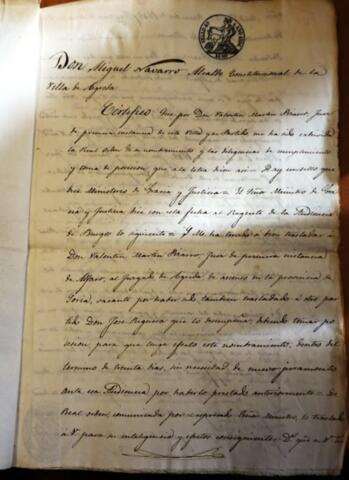 Don Miguel Navarro Alcalde Constitucional de la
Villa de Agreda
Certifico Que por Don Valentin Martin Bravo, Juez
de primera instancia de esta Villa y su Partido me ha sido exhivida
la Real orden de su nombramiento y las diligencias de cumplimiento
y toma de posesion, que a la letra dicen asi = Hay un sello que
dice Ministerio de Gracia y Justicia = El Señor Ministro de Gra
cia y Justicia dice con esta fecha al Regente de la Audiencia
de Burgos lo siguiente = S M. ha tenido a bien trasladar a
Don Valentin Martin Bravo, Juez de primera instancia
de Alfaro, al Juzgado de Agreda de ascenso en la provincia de
Soria, vacante por haber sido tambien trasladado a otro par
tido Don José que lo desempeñaba, debiendo tomar po
sesion para que tenga efecto este nombramiento, dentro del
termino de treinta dias, sin necesidad de nuevo juramento
ante esa Audiencia por haberlo prestado anteriormente = De
Real orden, comunicada por el espresado Señor Ministro, lo traslado
a V. para su inteligencia y efectos consiguientes. Dios gue a V.